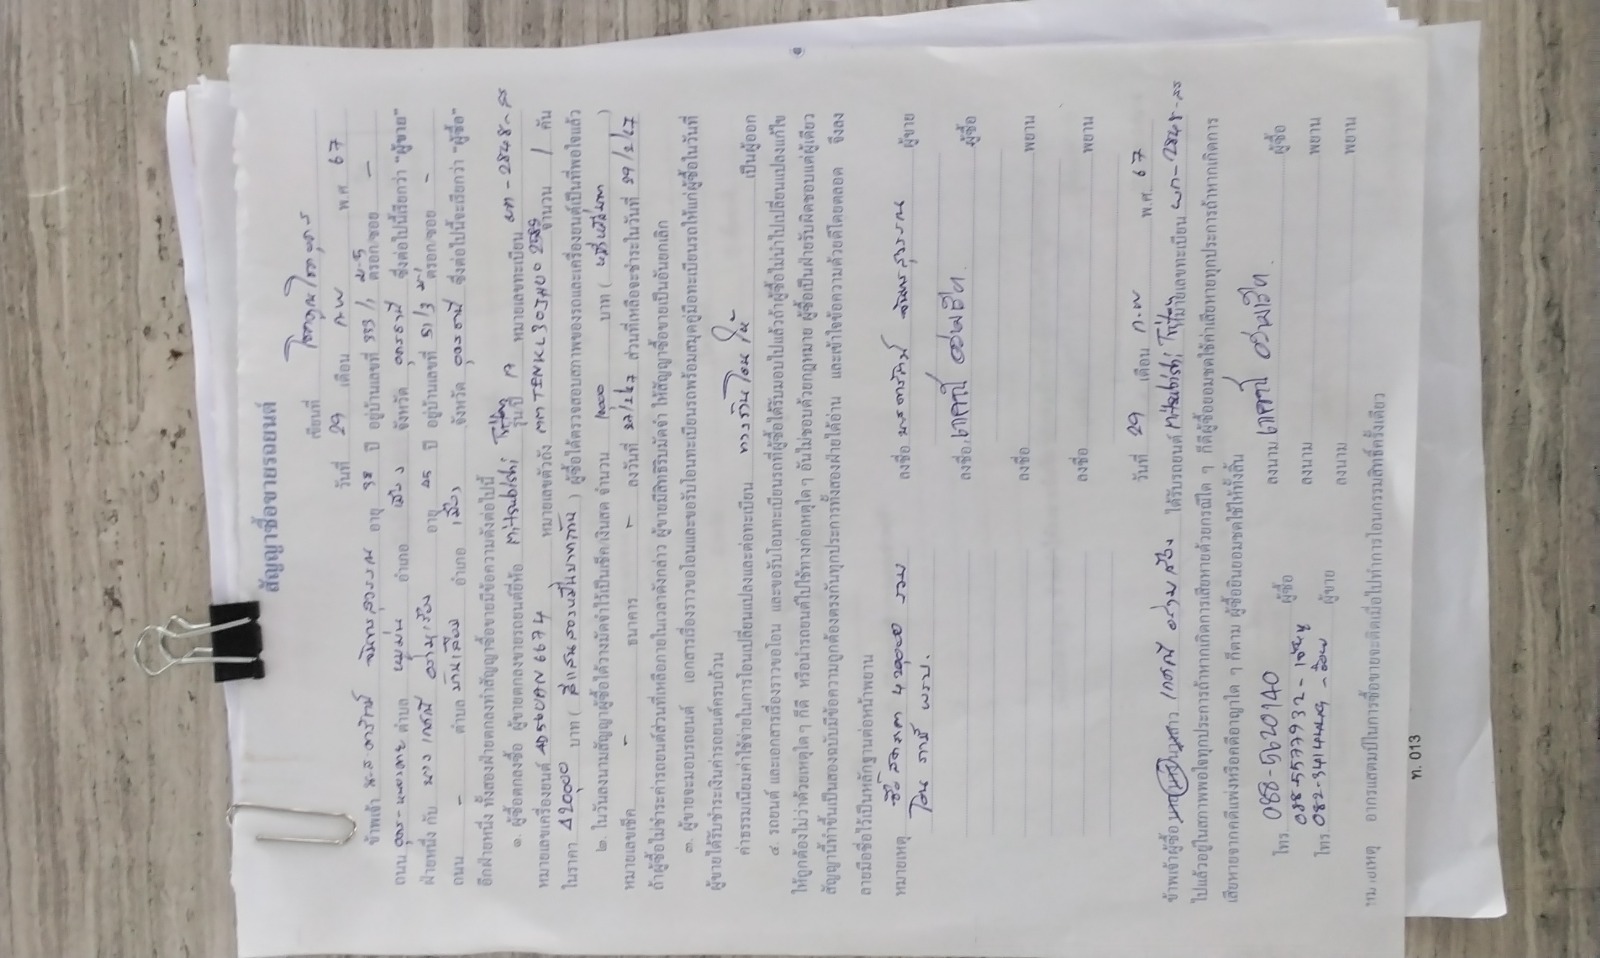 สัญญาซื้อขายรถยนต์
เขียนที่
วันที่ 29 เดือน ก.พ พ.ศ. 67
ข้าพเจ้า อายุ 38 ปี อยู่บ้านเลขที่ ตรอก/ซอย -
ถนน ตำบล อำเภอ จังหวัด อุดรธานี ซึ่งต่อไปนี้เรียกว่า "ผู้ขาย"
ฝ่ายหนึ่ง กับ นาง เกศณี อายุ 45 ปี อยู่บ้านเลขที่ 51/3 ตรอก/ซอย -
ถนน - ตำบล อำเภอ เมือง จังหวัด อุดรธานี ซึ่งต่อไปนี้จะเรียกว่า "ผู้ซื้อ"
อีกฝ่ายหนึ่ง ทั้งสองฝ่ายตกลงทำสัญญาซื้อขายมีข้อความดังต่อไปนี้
๑. ผู้ซื้อตกลงซื้อ ผู้ขายตกลงขายรถยนต์ยี่ห้อ Mitsubishi Triton รุ่นปี 17 หมายเลขทะเบียน ผก-2848-อด
หมายเลขเครื่องยนต์ 4D56UAN6674 หมายเลขตัวถัง MMTJNKL30JH002589 จำนวน 1 คัน
ในราคา 420000 บาท ( สี่แสนสองหมื่นบาทถ้วน ) ผู้ซื้อได้ตรวจสอบสภาพของรถและเครื่องยนต์เป็นที่พอใจแล้ว
๒. ในวันลงนามสัญญาผู้ซื้อได้วางมัดจำไว้เป็นเช็ค/เงินสด จำนวน บาท ( )
หมายเลขเช็ค - ธนาคาร - ลงวันที่ ส่วนที่เหลือจะชำระในวันที่ 29/2/67
ถ้าผู้ซื้อไม่ชำระค่ารถยนต์ส่วนที่เหลือภายในเวลาดังกล่าว ผู้ขายมีสิทธิริบมัดจำ ให้สัญญาซื้อขายเป็นอันยกเลิก
๓. ผู้ขายจะมอบรถยนต์ เอกสารเรื่องราวขอโอนและขอรับโอนทะเบียนรถพร้อมสมุดคู่มือทะเบียนรถให้แก่ผู้ซื้อในวันที่
ผู้ขายได้รับชำระเงินค่ารถยนต์ครบถ้วน
ค่าธรรมเนียมค่าใช้จ่ายในการโอนเปลี่ยนแปลงและต่อทะเบียน ทางร้านโอนให้ เป็นผู้ออก
๔. รถยนต์ และเอกสารเรื่องราวขอโอน และขอรับโอนทะเบียนรถที่ผู้ซื้อได้รับมอบไปแล้วถ้าผู้ซื้อไม่นำไปเปลี่ยนแปลงแก้ไข
ให้ถูกต้องไม่ว่าด้วยเหตุใด ๆ ก็ดี หรือนำรถยนต์ไปใช้ทางก่อเหตุใด ๆ อันไม่ชอบด้วยกฎหมาย ผู้ซื้อเป็นฝ่ายรับผิดชอบแต่ผู้เดียว
สัญญานี้ทำขึ้นเป็นสองฉบับมีข้อความถูกต้องตรงกันทุกประการทั้งสองฝ่ายได้อ่าน และเข้าใจข้อความด้วยดีโดยตลอด จึงลง
ลายมือชื่อไว้เป็นหลักฐานต่อหน้าพยาน
หมายเหตุ ซื้อสดราคา 420000 รวม ลงชื่อ ผู้ขาย
โอน ภาษี พรบ. ลงชื่อ เกศณี ผู้ซื้อ
ลงชื่อ พยาน
ลงชื่อ พยาน
วันที่ 29 เดือน ก.พ พ.ศ. 67
ข้าพเจ้าผู้ซื้อ นาย/นาง/นางสาว เกศณี ได้รับรถยนต์ Mitsubishi Triton หมายเลขทะเบียน ผก-2848-อด
ไปแล้วอยู่ในสภาพพอใจทุกประการถ้าหากเกิดการเสียหายด้วยกรณีใด ๆ ก็ดีผู้ซื้อยอมชดใช้ค่าเสียหายทุกประการถ้าหากเกิดการ
เสียหายจากคดีแพ่งหรือคดีอาญาใด ๆ ก็ตาม ผู้ซื้อยินยอมชดใช้ให้ทั้งสิ้น
โทร. 088-5620140 ผู้ซื้อ ลงนาม เกศณี ผู้ซื้อ
088-5577932 ลงนาม พยาน
โทร. ผู้ขาย ลงนาม พยาน
หมายเหตุ อากรแสตมป์ในการซื้อขายจะติดเมื่อไปทำการโอนกรรมสิทธิ์ครั้งเดียว
ท. 013